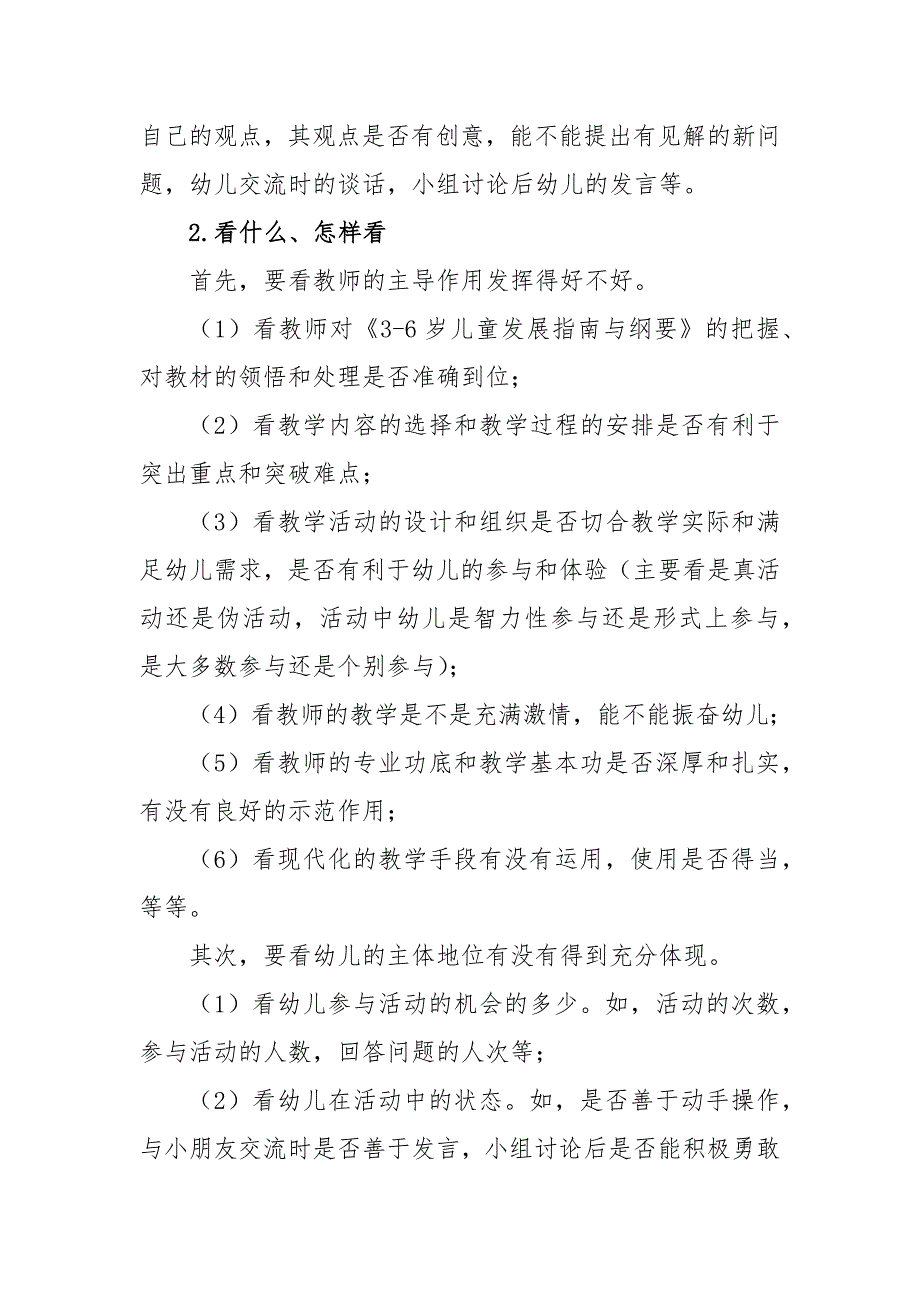 自己的观点，其观点是否有创意，能不能提出有见解的新问
题，幼儿交流时的谈话，小组讨论后幼儿的发言等。
2.看什么、怎样看
首先，要看教师的主导作用发挥得好不好。
（1）看教师对《3-6 岁儿童发展指南与纲要》的把握、
对教材的领悟和处理是否准确到位；
（2）看教学内容的选择和教学过程的安排是否有利于
突出重点和突破难点；
（3）看教学活动的设计和组织是否切合教学实际和满
足幼儿需求，是否有利于幼儿的参与和体验（主要看是真活
动还是伪活动，活动中幼儿是智力性参与还是形式上参与，
是大多数参与还是个别参与）；
（4）看教师的教学是不是充满激情，能不能振奋幼儿；
（5）看教师的专业功底和教学基本功是否深厚和扎实，
有没有良好的示范作用；
（6）看现代化的教学手段有没有运用，使用是否得当，
等等。
其次，要看幼儿的主体地位有没有得到充分体现。
（1）看幼儿参与活动的机会的多少。如，活动的次数，
参与活动的人数，回答问题的人次等；
（2）看幼儿在活动中的状态。如，是否善于动手操作，
与小朋友交流时是否善于发言，小组讨论后是否能积极勇敢